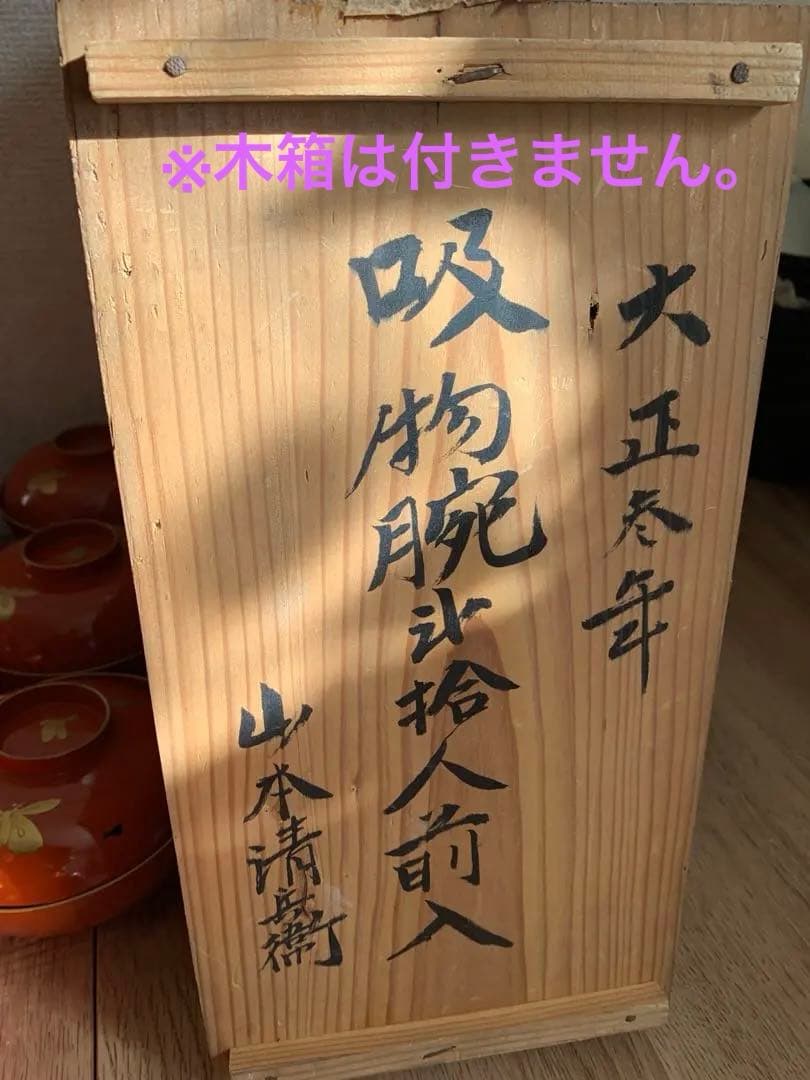 ※木箱は付きません。
大正参年
吸物腕弐拾人前入
山本清兵衛